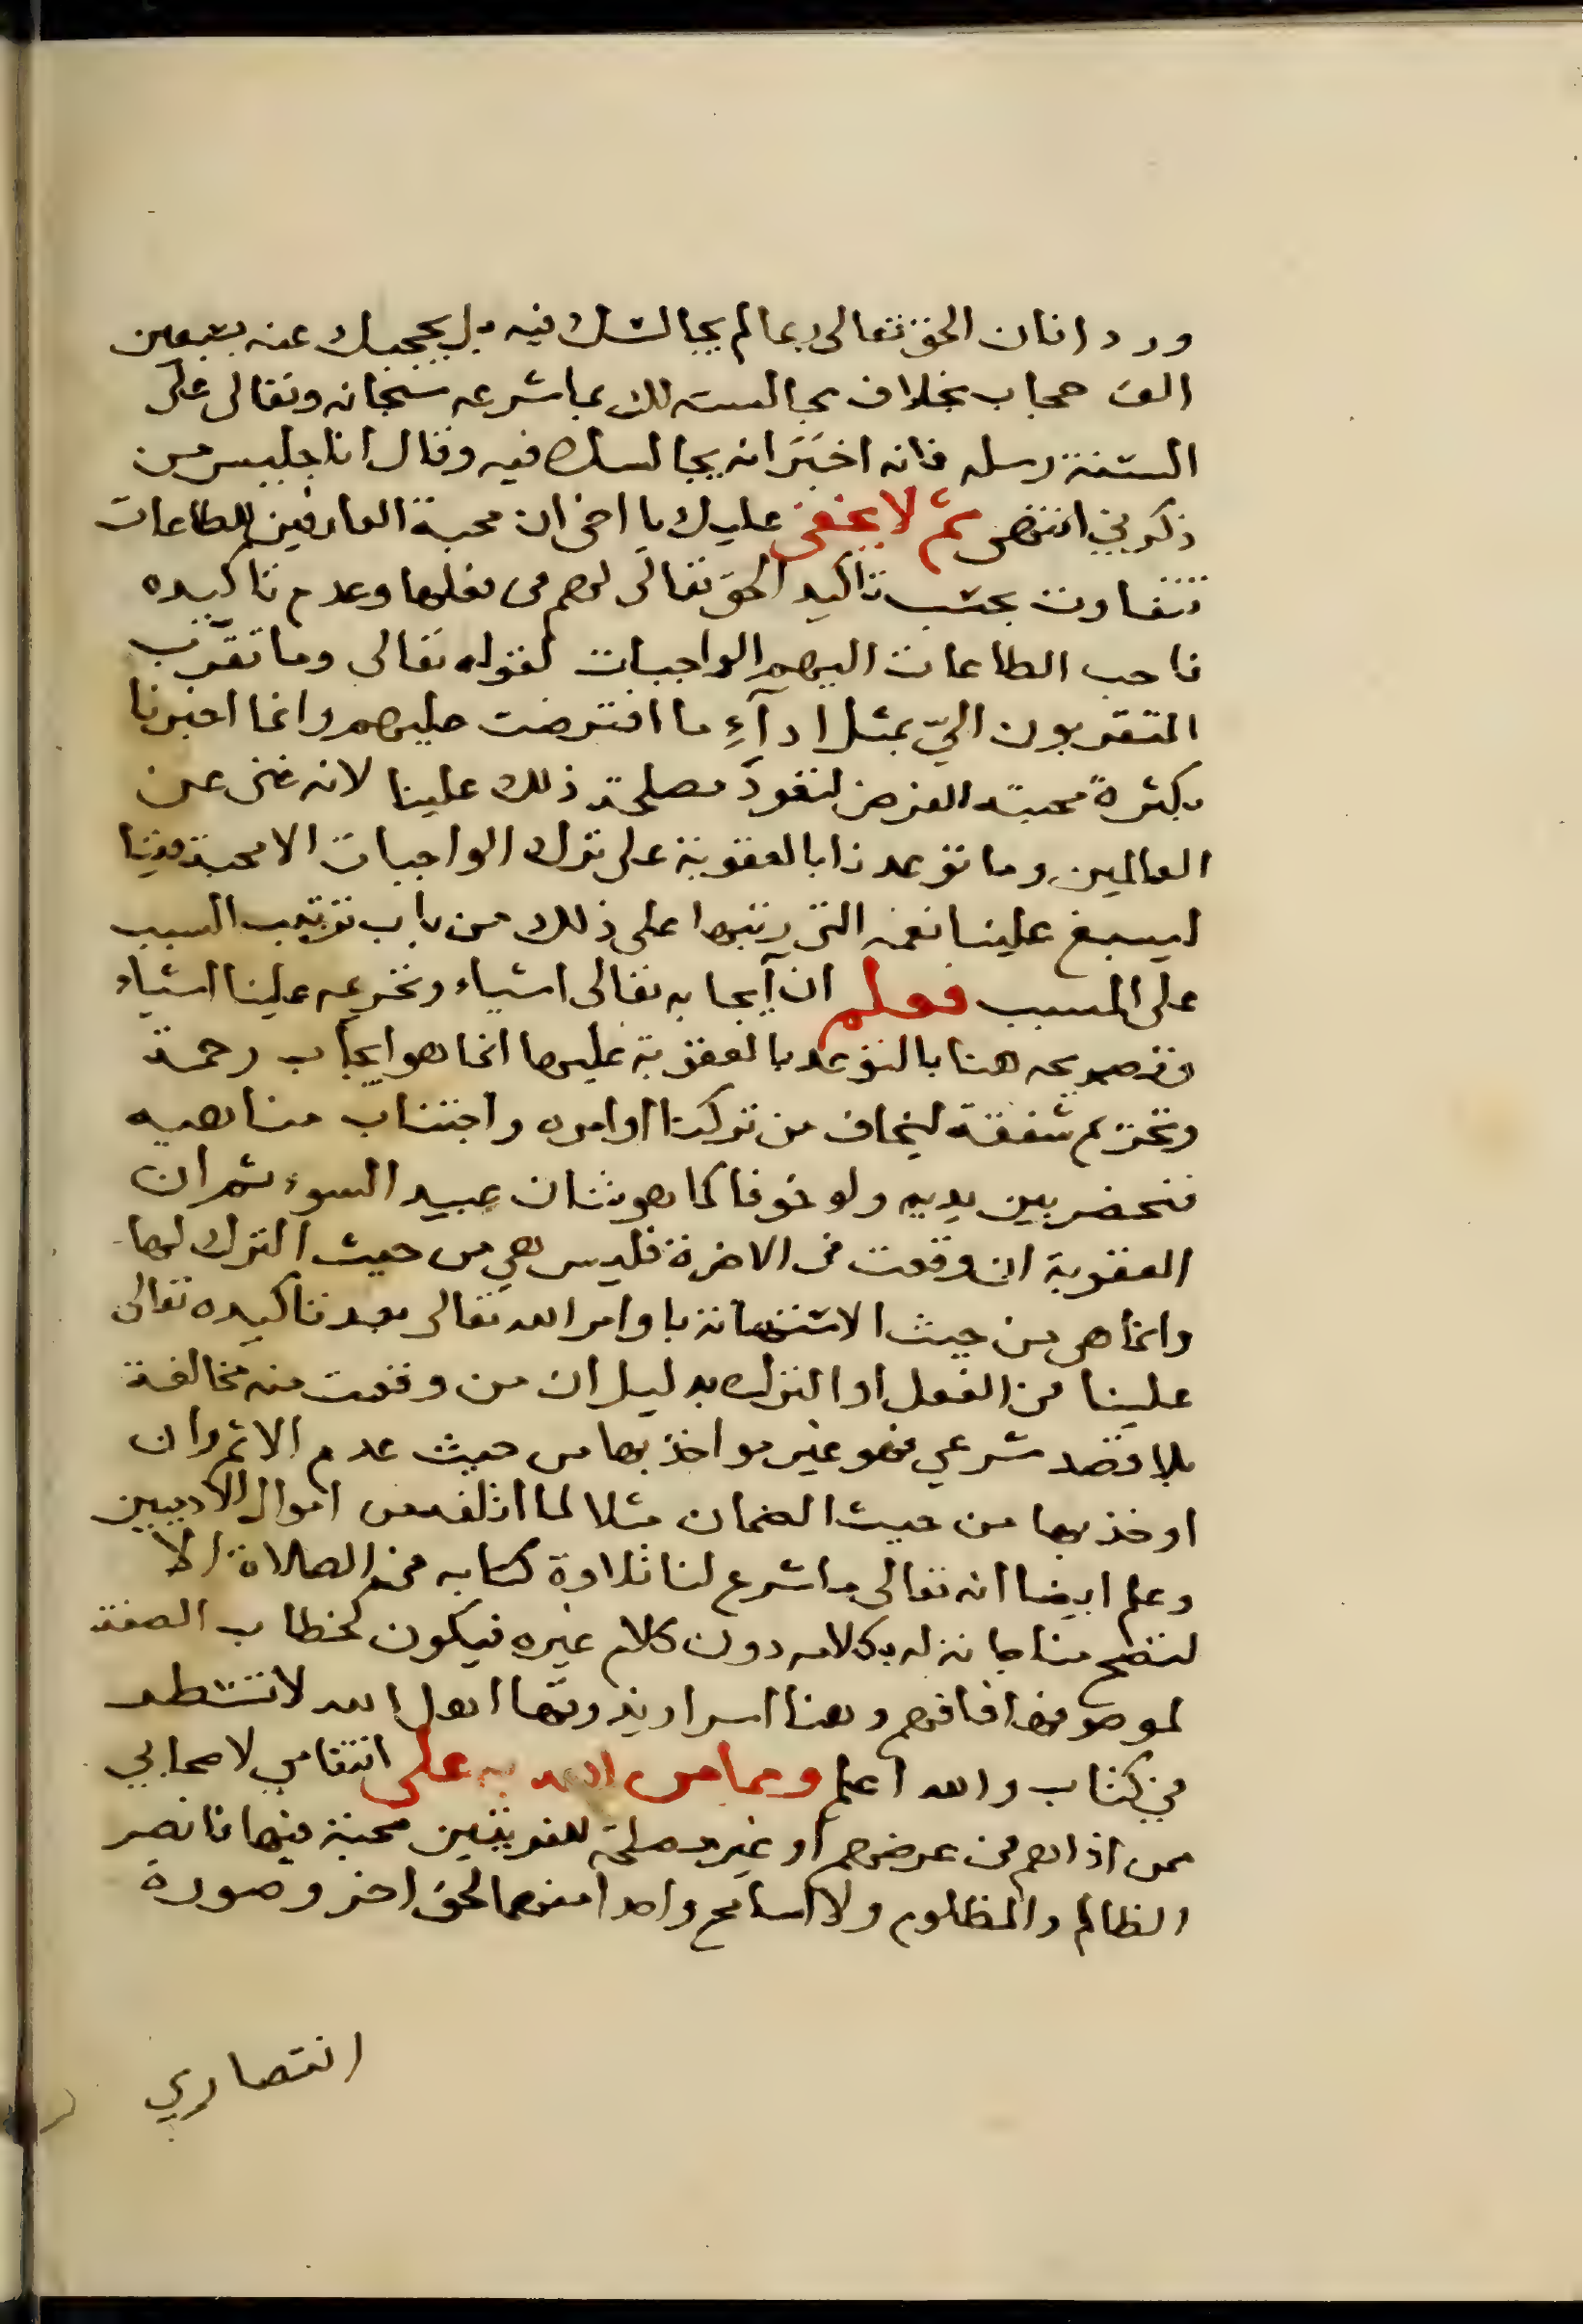 وردا فان الحق تعالى ربما لم يجالسك فيه بل يحجبك عنه بسبعين
الف حجاب بخلاف مجالسته لك بما شرعه سبحانه وتعالى على
السنة رسله فانه اخبَرَ انه يجالسك فيه وقال انا جليس من
ذكرني انتهى ثم لا يخفى عليك يا اخي ان محبة العارفين للطاعات
تتفاوت بحسب تاكيد الحق تعالى لهم في فعلها وعدم تاكيده
فاحب الطاعات اليهم الواجبات لقوله تعالى وما تقرّب
المتقربون اليّ بمثل ادآءِ ما افترضت عليهم وانما اخبرنا
بكثرة محبته الفرض لتعود مصلحة ذلك علينا لانه غنى عن
العالمين وما توعدنا بالعقوبة على ترك الواجبات الا محبة فينا
ليسبغ علينا نعمه التى رتبها على ذلك من باب ترتيب السبب
على المسبب فعلم ان آيجابه تعالى اشياء وتحريمه علينا اشياء
وتصريحه هنا بالتوعد بالعقوبة عليها انما هو ايجاب رحمة
وتحريم شفقة ليخاف من تركنا اوامره واجتناب مناهيه
فنحضر بين يديه ولو خوفا كما هو شان عبيد السوء ثم ان
العقوبة ان وقعت فى الاخرة فليس هي من حيث الترك لها
وانما هى من حيث الاستهانة باوامر الله تعالى بعد تاكيده تعالى
علينا فى الفعل او الترك بدليل ان من وقعت منه مخالفة
بلا قصد شرعي فهو غير مواخذ بها من حيث عدم الاثم وان
اوخذ بها من حيث الضمان مثلا لما اتلفه من اموال الادميين
وعلم ايضا انه تعالى ما شرع لنا تلاوة كتابه في الصلاة الا
لتصح مناجاتنا له بكلامه دون كلام غيره فيكون كخطاب الصفة
لموصوفها فافهم وهنا اسرار يذوقها اهل الله لا تسطر
في كتاب والله اعلم ومما من الله به على انتقامي لاصحابي
ممن اذاهم فى عرضهم او غيره مصلحة للفريقين محبة فيها فانصر
الظالم والمظلوم ولا اسامح واحدا منهما لحق اخر وصورة
انتصاري